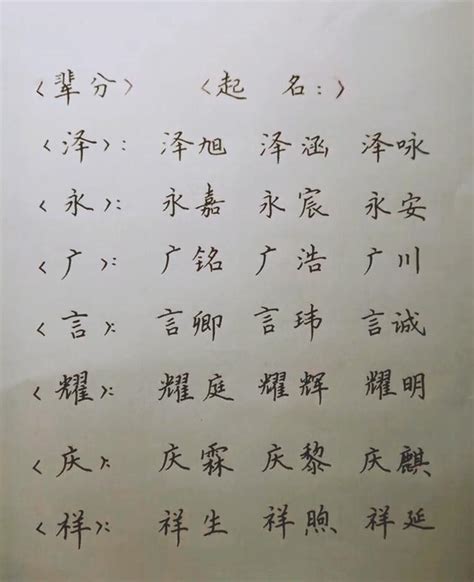 〈辈分〉 〈起 名：〉
〈泽〉： 泽旭 泽涵 泽咏
〈永〉： 永嘉 永宸 永安
〈广〉： 广铭 广浩 广川
〈言〉： 言卿 言玮 言诚
〈耀〉： 耀庭 耀辉 耀明
〈庆〉： 庆霖 庆黎 庆麒
〈祥〉： 祥生 祥煦 祥延